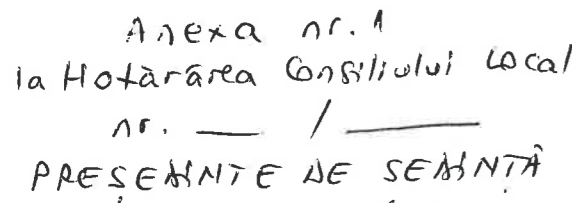 Anexa nr. 1
la Hotărârea Consiliului Local
nr. ___ / ______
PREȘEDINTE DE ȘEDINȚĂ